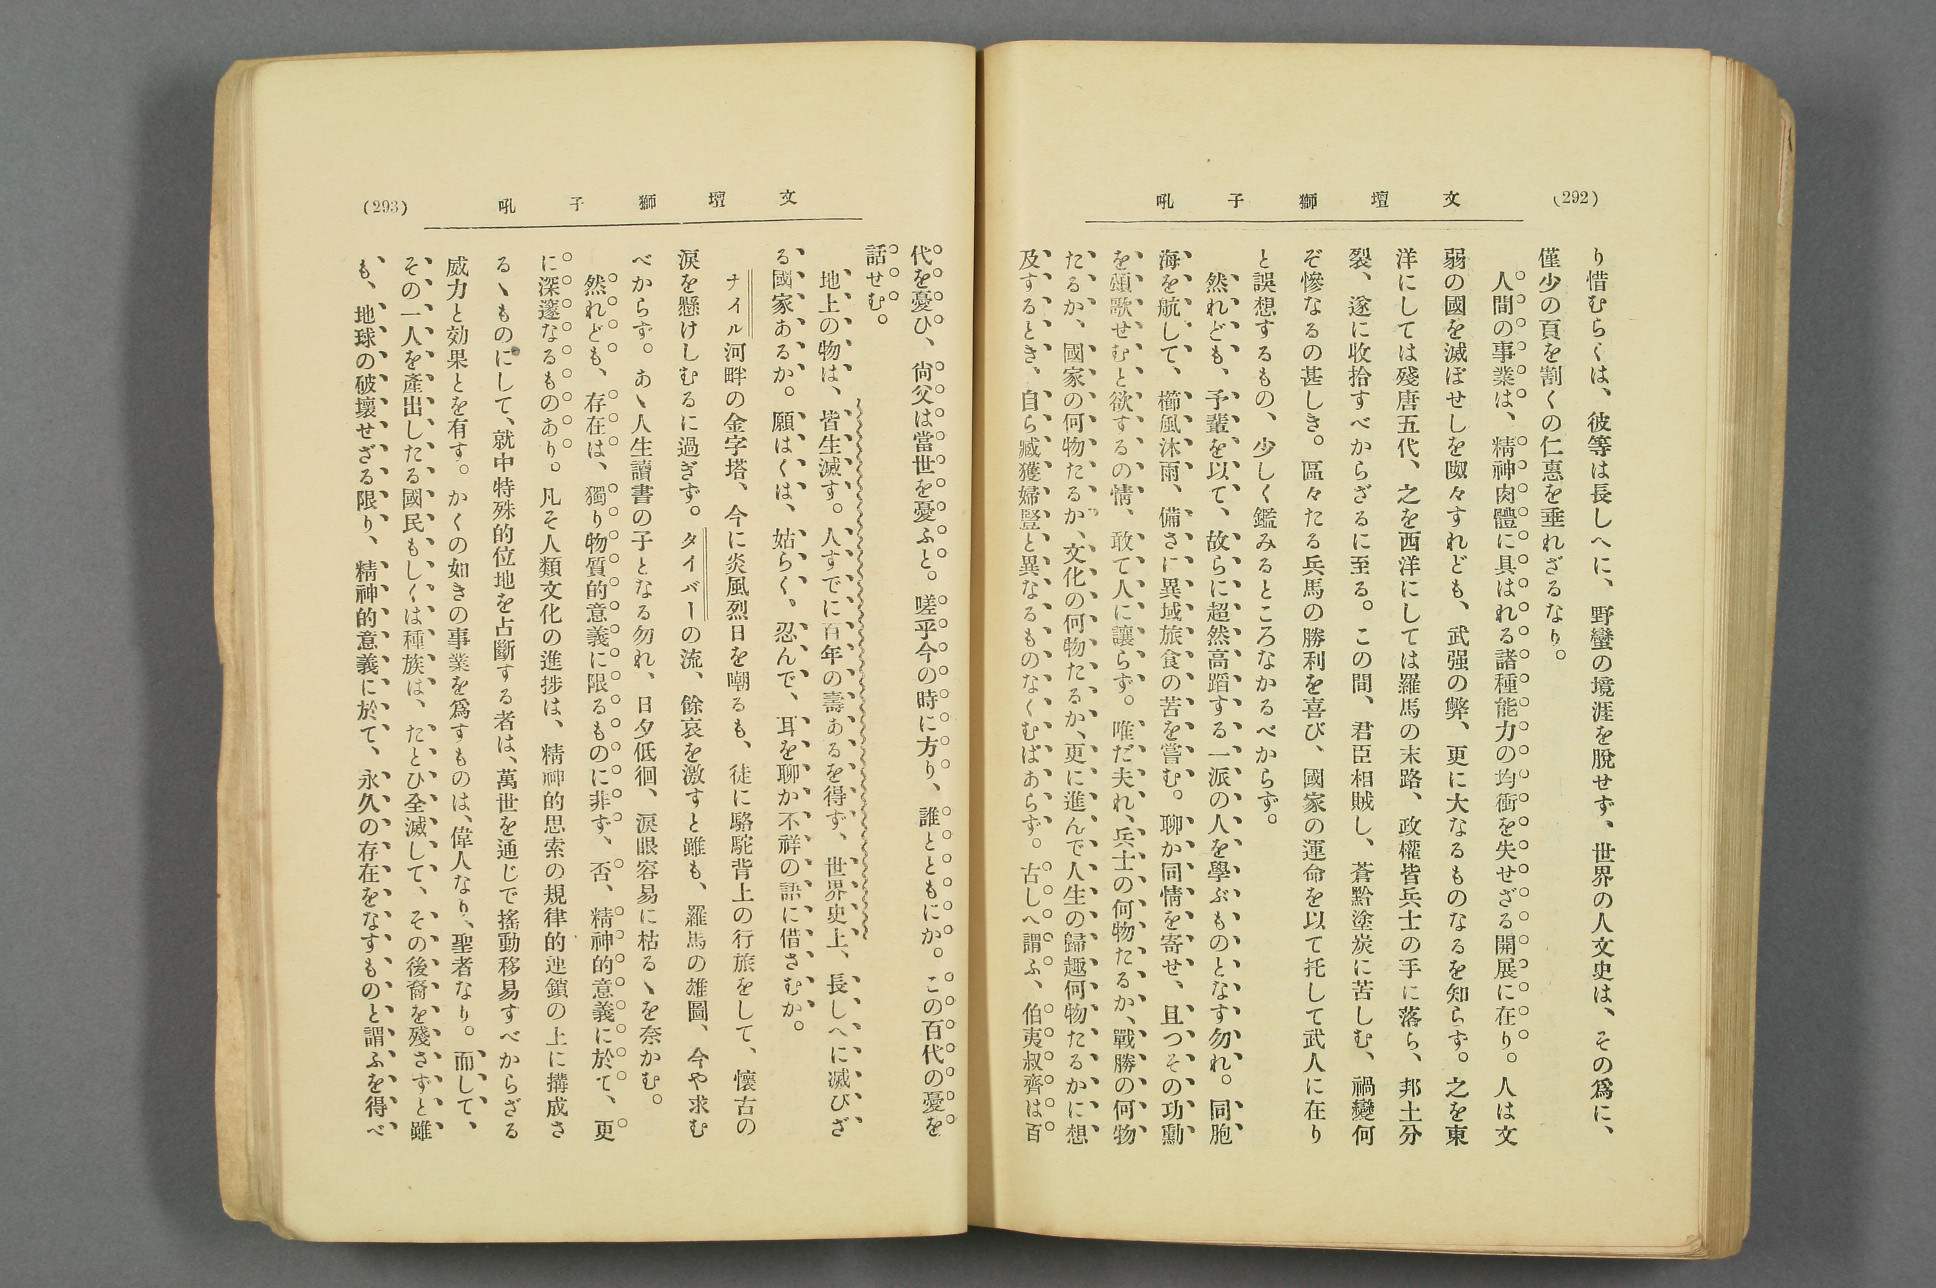 (292)
文壇獅子吼
り惜むらくは、彼等は長しへに、野蠻の境涯を脫せず、世界の人文史は、その爲に、
僅少の頁を割くの仁惠を垂れざるなり。
人間の事業は、精神肉體に具はれる諸種能力の均衝を失せざる開展に在り。人は文
弱の國を滅ぼせしを呶々すれども、武强の弊、更に大なるものなるを知らず。之を東
洋にしては殘唐五代、之を西洋にしては羅馬の末路、政權皆兵士の手に落ち、邦土分
裂、遂に收拾すべからざるに至る。この間、君臣相賊し、蒼黔塗炭に苦しむ、禍變何
ぞ慘なるの甚しき。區々たる兵馬の勝利を喜び、國家の運命を以て托して武人に在り
と誤想するもの、少しく鑑みるところなかるべからず。
然れども、予輩を以て、故らに超然高蹈する一派の人を學ぶものとなす勿れ。同胞
海を航して、櫛風沐雨、備さに異域旅食の苦を嘗む。聊か同情を寄せ、且つその功勳
を頌歌せむと欲するの情、敢て人に讓らず。唯だ夫れ、兵士の何物たるか、戰勝の何物
たるか、國家の何物たるか、文化の何物たるか、更に進んで人生の歸趣何物たるかに想
及するとき、自ら臧獲婦豎と異なるものなくむばあらず。古しへ謂ふ、伯夷叔齊は百
(293)
文壇獅子吼
代を憂ひ、尙父は當世を憂ふと。嗟乎今の時に方り、誰とともにか。この百代の憂を
話せむ。
地上の物は、皆生滅す。人すでに百年の壽あるを得ず、世界史上、長しへに滅びざ
る國家あるか。願はくは、姑らく。忍んで、耳を聊か不祥の語に借さむか。
ナイル河畔の金字塔、今に炎風烈日を嘲るも、徒に駱駝背上の行旅をして、懷古の
淚を懸けしむるに過ぎず。タイバーの流、餘哀を激すと雖も、羅馬の雄圖、今や求む
べからず。あゝ人生讀書の子となる勿れ、日夕低徊、淚眼容易に枯るゝを奈かむ。
然れども、存在は、獨り物質的意義に限るものに非ず、否、精神的意義に於て、更
に深邃なるものあり。凡そ人類文化の進捗は、精神的思索の規律的連鎖の上に搆成さ
るゝものにして、就中特殊的位地を占斷する者は、萬世を通じで搖動移易すべからざる
威力と効果とを有す。かくの如きの事業を爲すものは、偉人なり、聖者なり。而して、
その一人を產出したる國民もしくは種族は、たとひ全滅して、その後裔を殘さずと雖
も、地球の破壞せざる限り、精神的意義に於て、永久の存在をなすものと謂ふを得べ